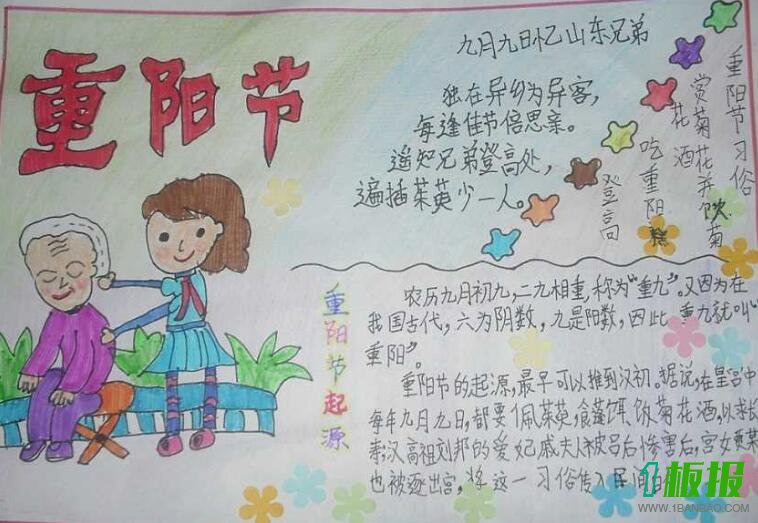 重阳节
九月九日忆山东兄弟
独在异乡为异客，
每逢佳节倍思亲。
遥知兄弟登高处，
遍插茱萸少一人。
重阳节习俗
赏菊花并饮菊
花酒
吃重阳
登高
重阳节起源
农历九月初九，二九相重，称为“重九”。又因为在
我国古代，六为阴数，九是阳数，因此，重九就叫“
重阳”。
重阳节的起源，最早可以推到汉初。据说，在皇宫中，
每年九月九日，都要佩茱萸，食蓬饵、饮菊花酒，以求长
寿；汉高祖刘邦的爱妃戚夫人被吕后惨害后，宫女贾某
也被逐出宫，将这一习俗传入民间
1板报
WWW.1BANBAO.COM